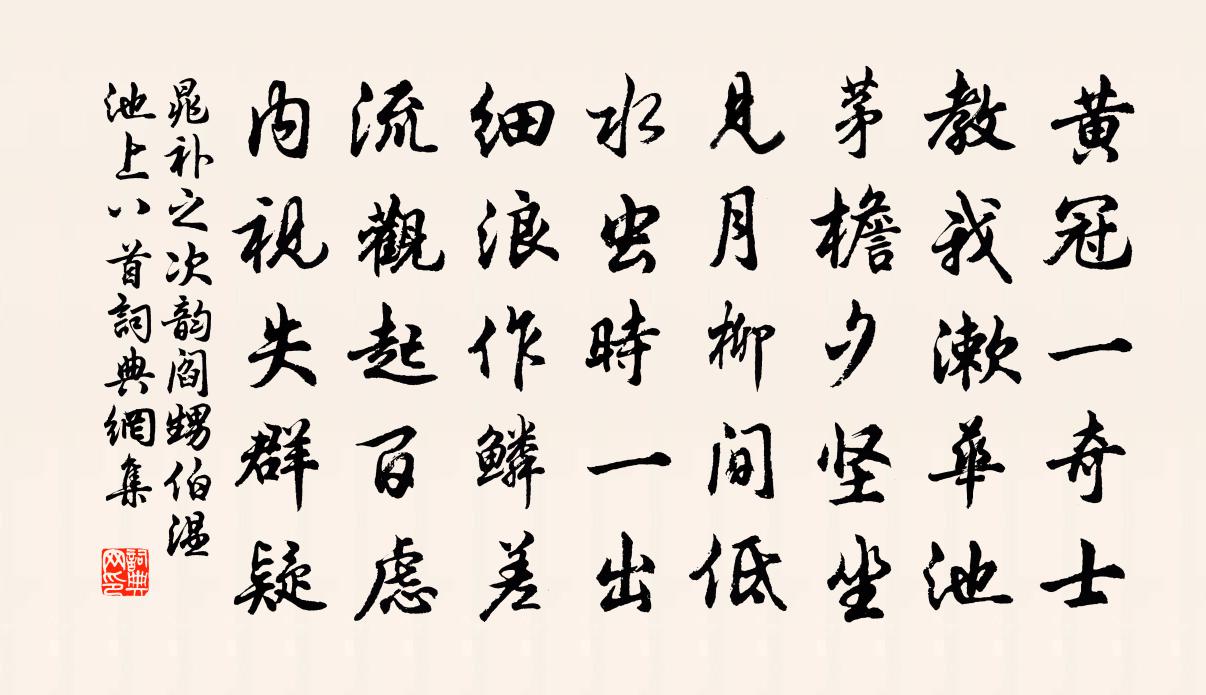 黄冠一奇士
教我漱華池
茅檐夕坚坐
見月柳间低
水虫時一出
细浪作鳞差
流觀起百慮
内視失群疑
晁补之次韵阎甥伯温
池上八首詞典網集
詞典网印